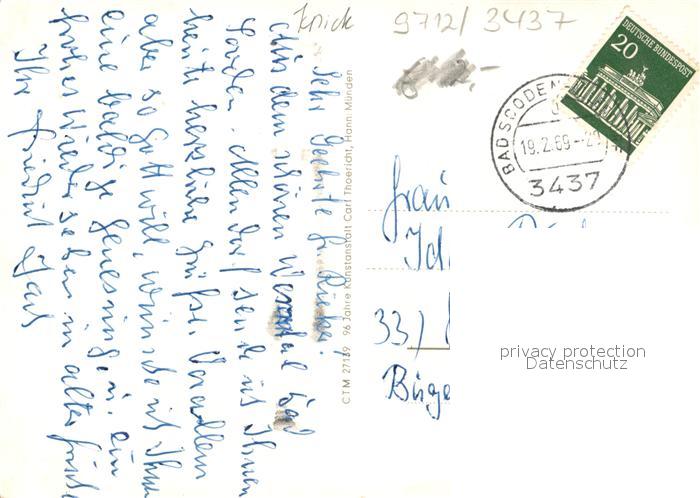 Knick 9712/3437
Sehr Geehrte Fr.
Aus dem schönen Werratal Bad
Sooden-Allendorf sende ich Ihnen
heute herzliche Grüße. Vor allem
aber so Gott will, wünsche ich Ihnen
eine baldige Genesung, u. ein
frohes Wiedersehen in alter Frische
Ihr Friedrich
CTM 27139 96 Jahre Kunstanstalt Carl Thoericht, Hann. Münden
DEUTSCHE BUNDESPOST
20
BAD SOODEN
19.2.69
3437
Frau
33)
privacy protection
Datenschutz